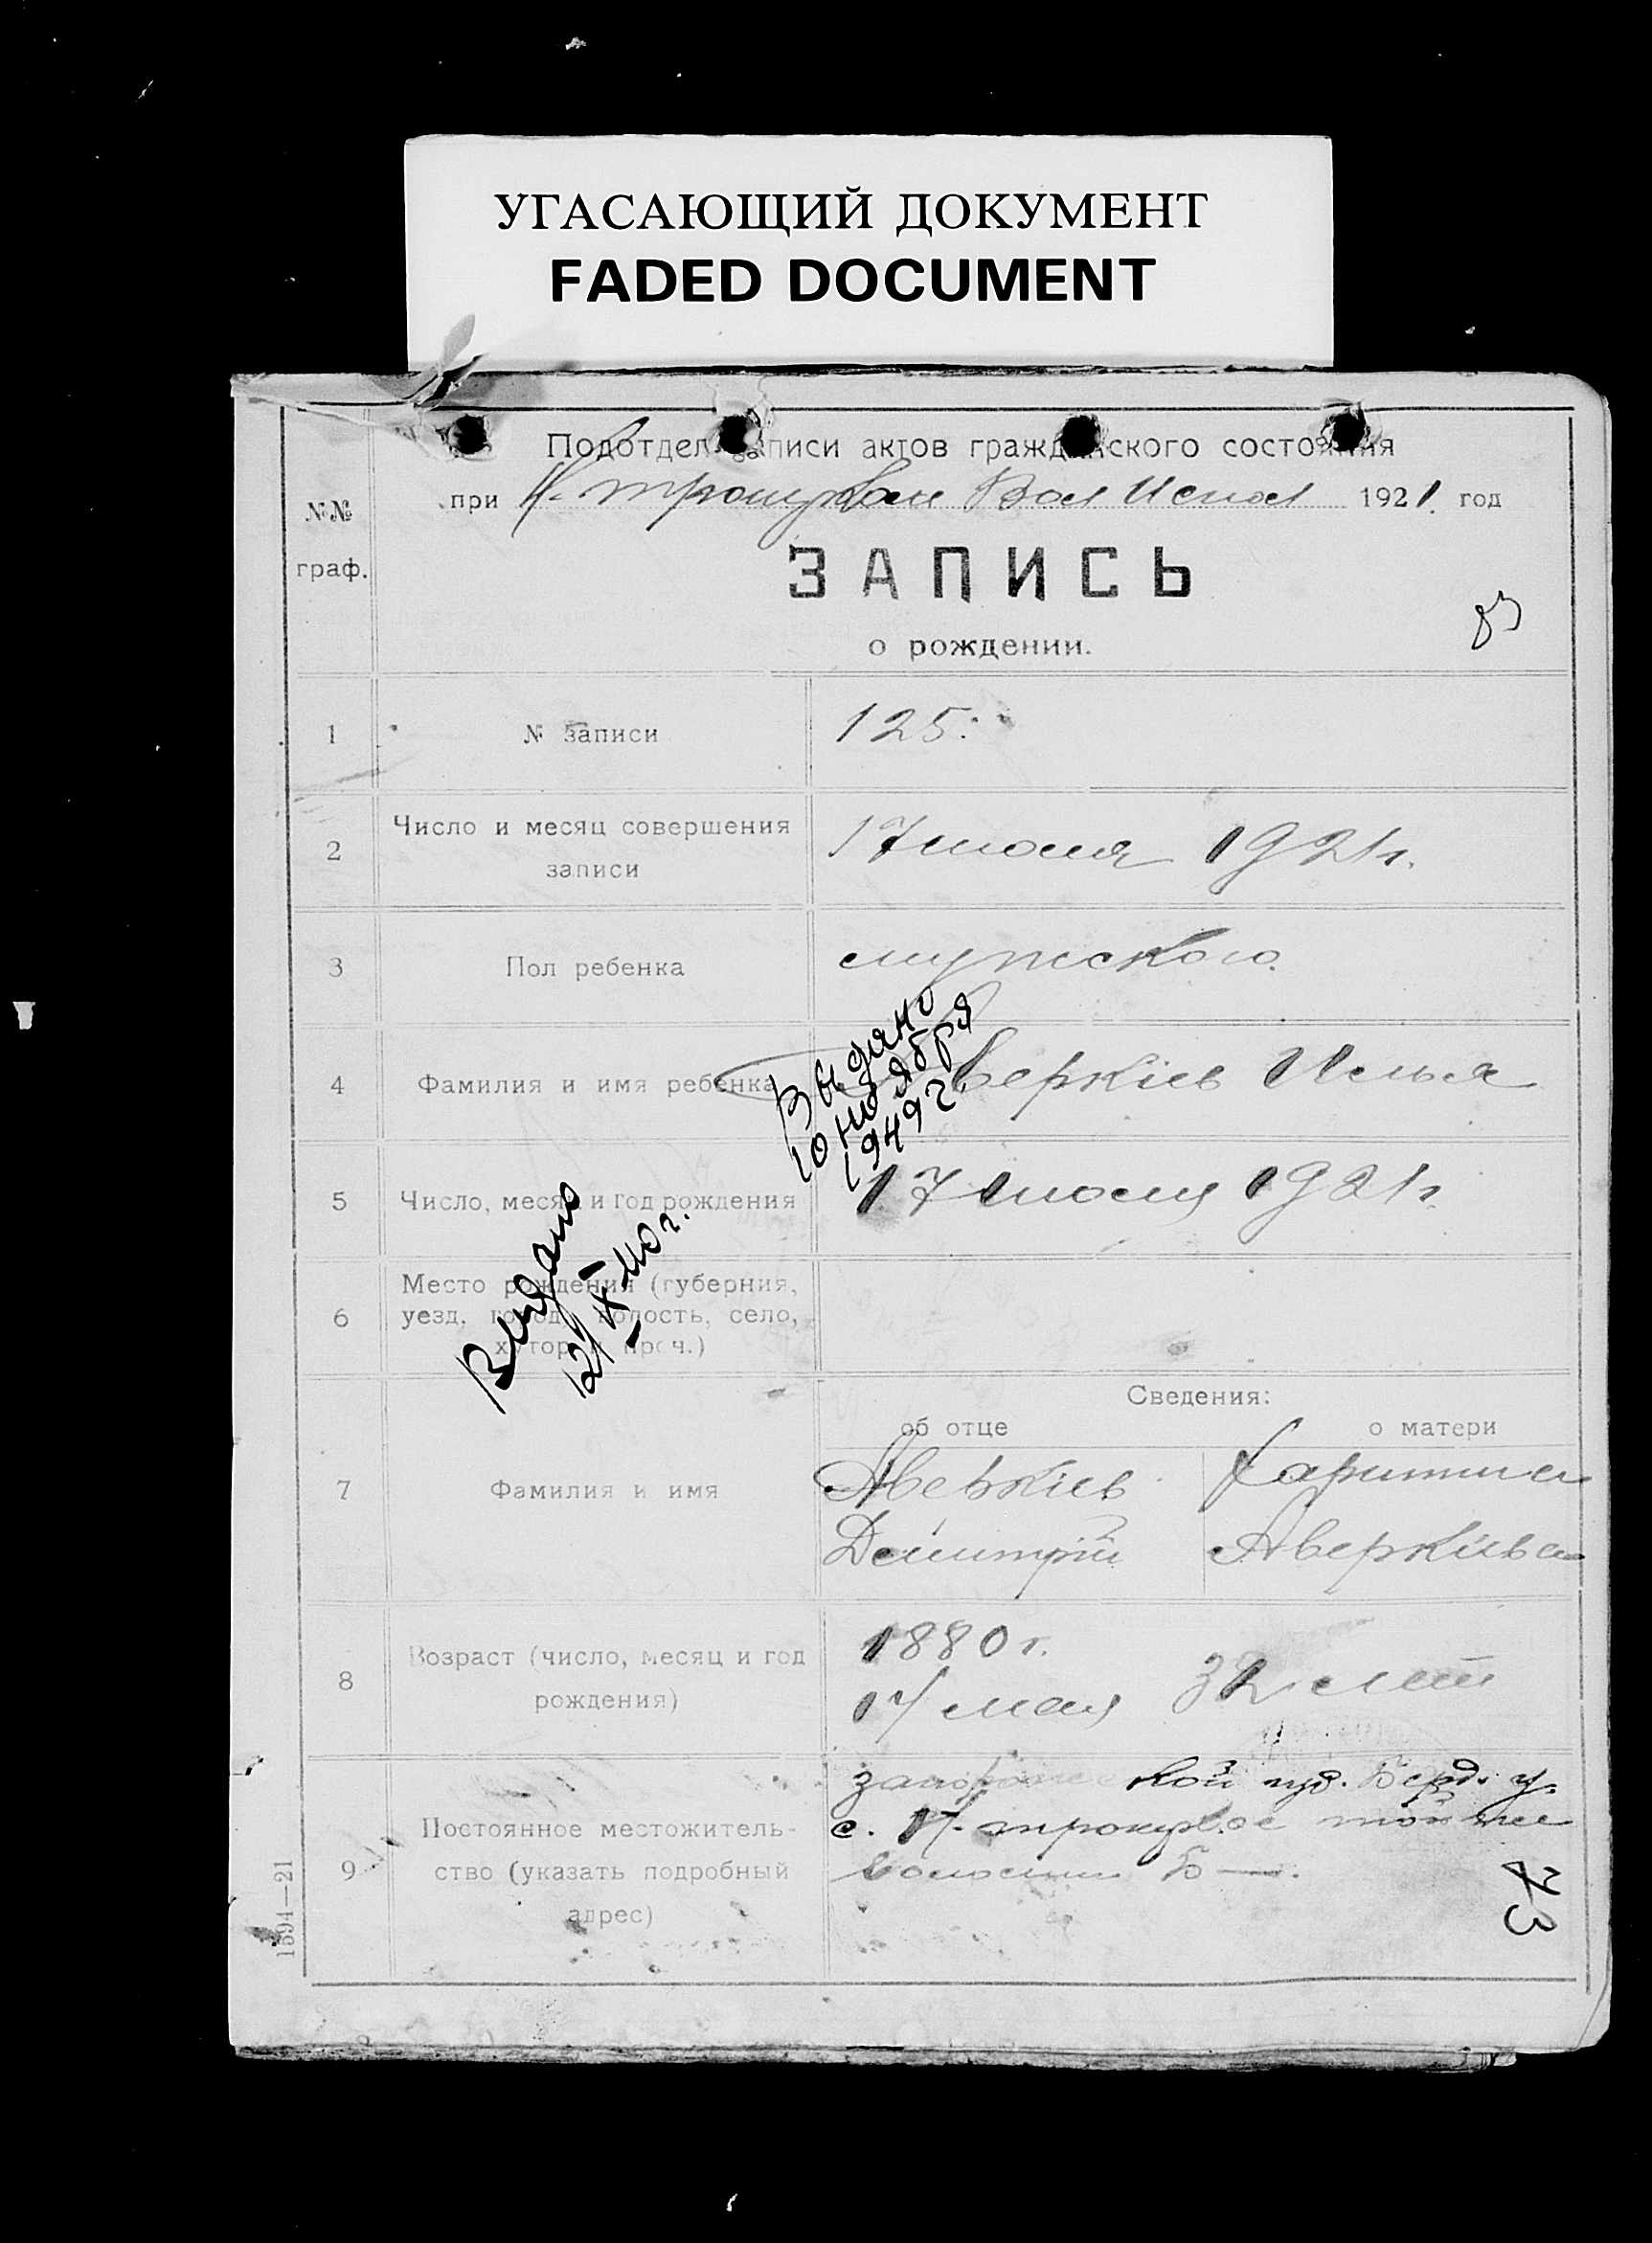 УГАСАЮЩИЙ ДОКУМЕНТ
FADED DOCUMENT
Подотдел записи актов гражданского состояния
при Н. Троицкой Вол Испол 1921 год
№№
граф.
ЗАПИСЬ
о рождении.
83
1 № записи 125.
2 Число и месяц совершения
записи
17 июля 1921 г.
3 Пол ребенка мужского.
4 Фамилия и имя ребенка Аверкiев Илья
Выдано
10 ноября
1949 г
5 Число, месяц и год рождения 17 июля 1921 г.
Выдано
12/IX-40 г.
6 Место рождения (губерния,
уезд, город, волость, село,
хутор и проч.)
Сведения:
об отце о матери
7 Фамилия и имя
Аверкiев Харитина
Димитрiй Аверкiева
8 Возраст (число, месяц и год
рождения)
1880 г.
17 мая 32 лет
9 Постоянное местожитель-
ство (указать подробный
адрес)
запорожской губ. Берд. у.
с. Н. троицкое той же
волости
73
1594—21